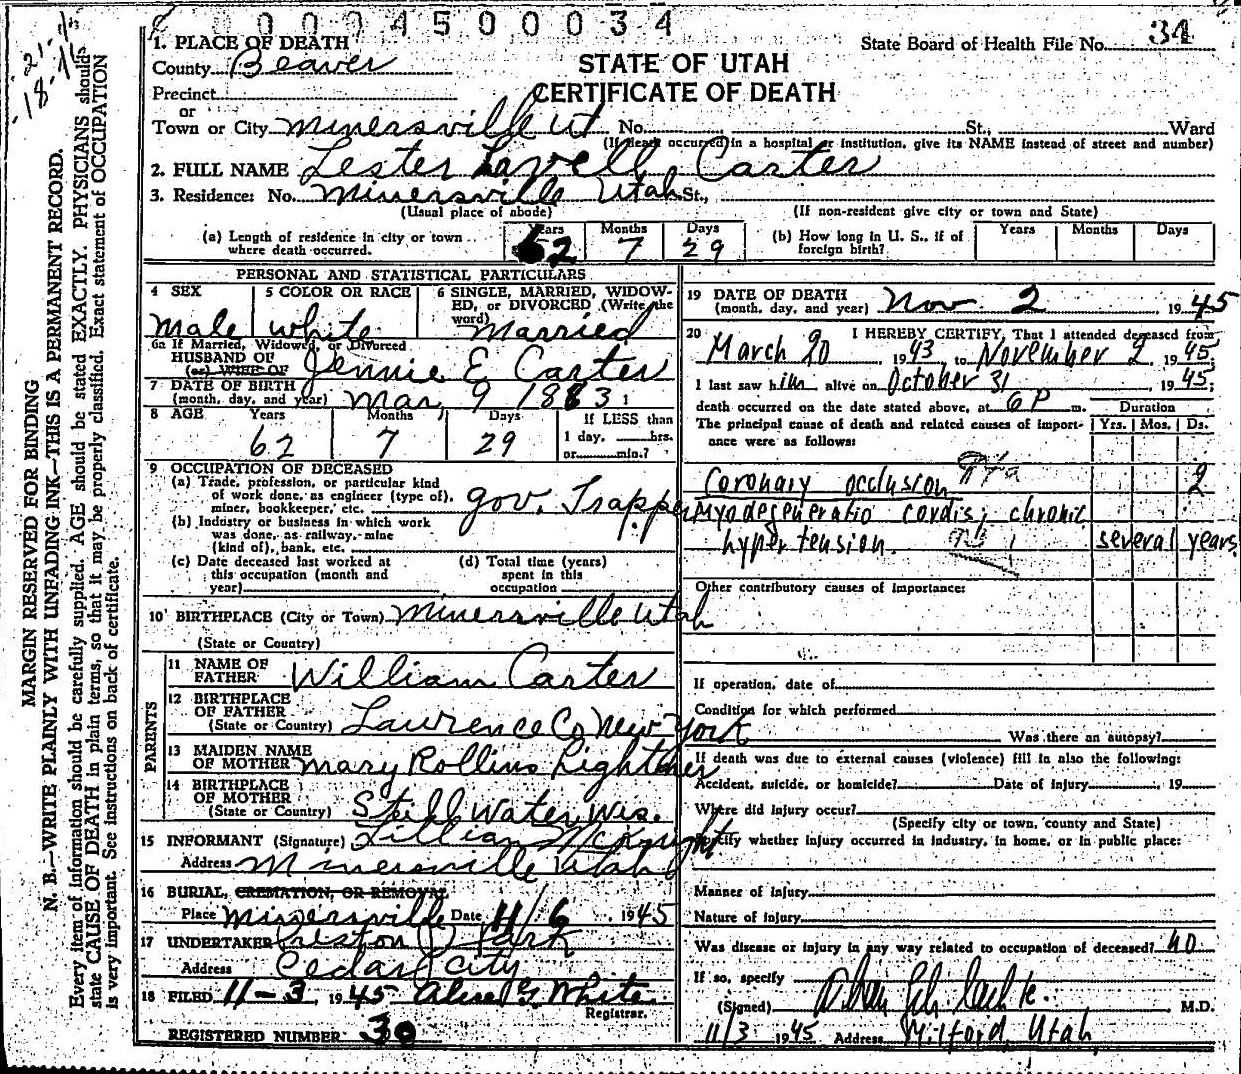 0004500034
State Board of Health File No. 34
1. PLACE OF DEATH
County Beaver
STATE OF UTAH
CERTIFICATE OF DEATH
Precinct
or
Town or City Minersville Ut No. St., Ward
(If death occurred in a hospital or institution, give its NAME instead of street and number)
2. FULL NAME Lester Lavell Carter
3. Residence: No. Minersville Utah St.,
(Usual place of abode) (If non-resident give city or town and State)
(a) Length of residence in city or town where death occurred. Years 62 Months 7 Days 29
(b) How long in U. S., if of foreign birth? Years Months Days
PERSONAL AND STATISTICAL PARTICULARS
4 SEX Male
5 COLOR OR RACE white
6 SINGLE, MARRIED, WIDOWED, or DIVORCED (Write the word) Married
6a If Married, Widowed, or Divorced
HUSBAND OF
(or) WIFE OF Jennie E Carter
7 DATE OF BIRTH
(month, day, and year) Mar 9 1883
8 AGE Years 62 Months 7 Days 29 If LESS than 1 day, hrs. or min.?
9 OCCUPATION OF DECEASED
(a) Trade, profession, or particular kind of work done, as engineer (type of), miner, bookkeeper, etc. Gov. Trapper
(b) Industry or business in which work was done, as railway, mine (kind of), bank, etc.
(c) Date deceased last worked at this occupation (month and year)
(d) Total time (years) spent in this occupation
10 BIRTHPLACE (City or Town) Minersville Utah
(State or Country)
PARENTS
11 NAME OF FATHER William Carter
12 BIRTHPLACE OF FATHER
(State or Country) Lawrence Co New York
13 MAIDEN NAME OF MOTHER Mary Rollins Lightner
14 BIRTHPLACE OF MOTHER
(State or Country) Still Water Wis.
15 INFORMANT (Signature) Lillian McKnight
Address Minersville Utah
16 BURIAL, CREMATION, OR REMOVAL
Place Minersville Date 11/6, 1945
17 UNDERTAKER Preston
Address Cedar City
18 FILED 11-3, 1945 Alice G. White
Registrar.
REGISTERED NUMBER 30
19 DATE OF DEATH
(month, day, and year) Nov 2, 1945
20 I HEREBY CERTIFY, That I attended deceased from
March 20, 1943 to November 2, 1945;
I last saw him alive on October 31, 1945;
death occurred on the date stated above, at 6 P m.
The principal cause of death and related causes of importance were as follows:
Duration
Yrs. Mos. Ds.
Coronary occlusion 2
Myodegeneratio cordis; chronic
hypertension. several years
Other contributory causes of importance:
If operation, date of
Condition for which performed
Was there an autopsy?
If death was due to external causes (violence) fill in also the following:
Accident, suicide, or homicide? Date of Injury, 19
Where did injury occur?
(Specify city or town, county and State)
Specify whether injury occurred in industry, in home, or in public place:
Manner of injury
Nature of injury
Was disease or injury in any way related to occupation of deceased? no
If so, specify
(Signed) M.D.
11/3 1945 Address Milford, Utah
MARGIN RESERVED FOR BINDING
N. B.—WRITE PLAINLY WITH UNFADING INK—THIS IS A PERMANENT RECORD.
Every item of information should be carefully supplied. AGE should be stated EXACTLY. PHYSICIANS should
state CAUSE OF DEATH in plain terms, so that it may be properly classified. Exact statement of OCCUPATION
is very important. See instructions on back of certificate.